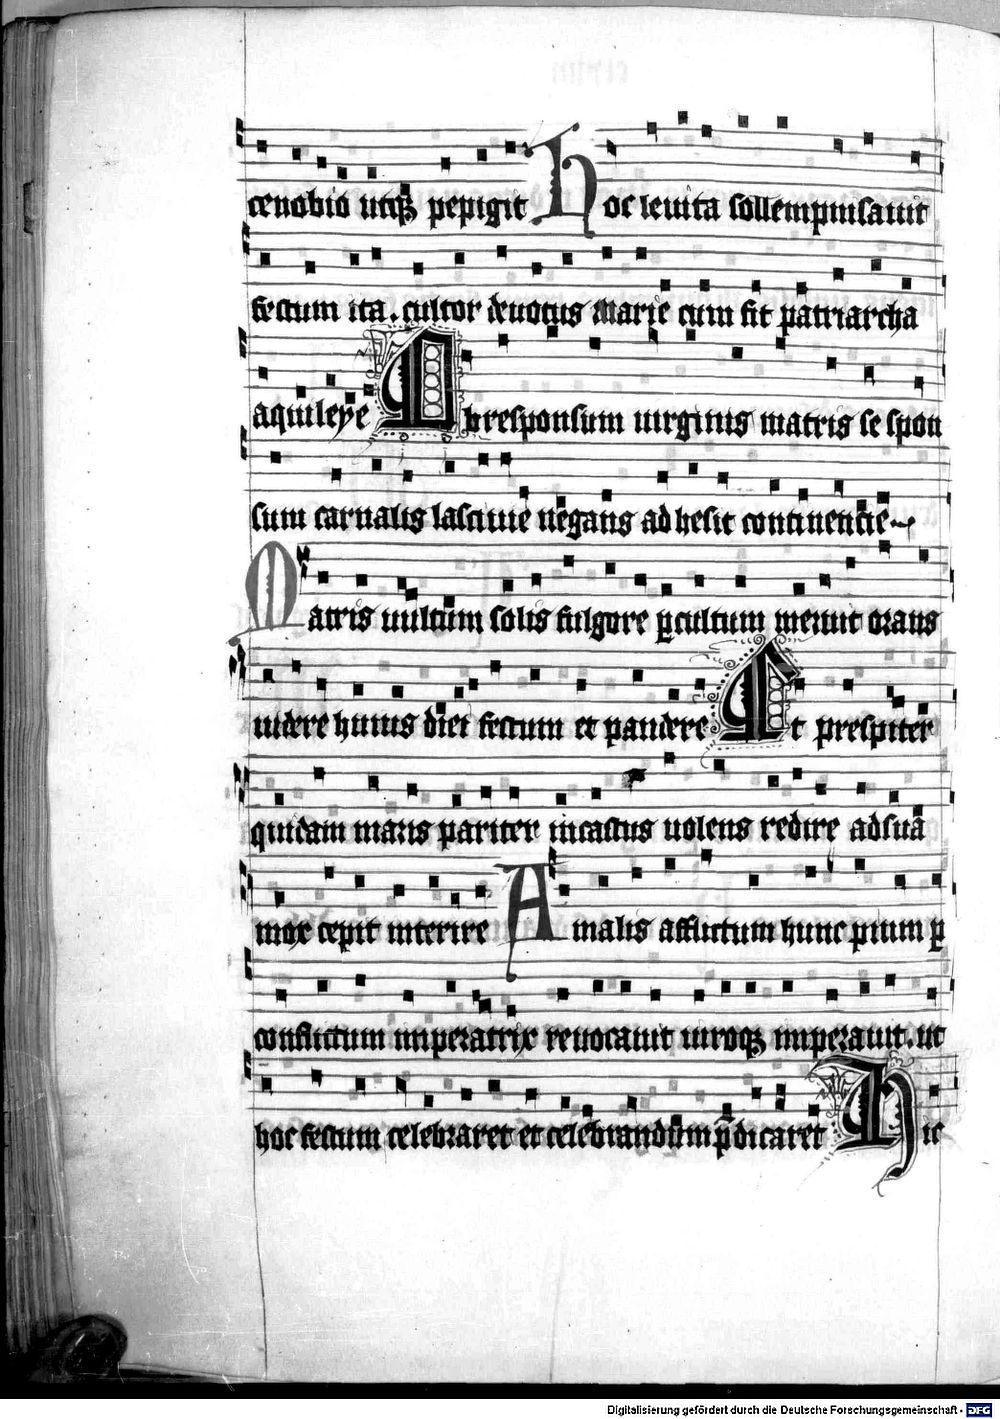 cenobio utiqꝫ pepigit Hoc leuita sollempnisauit
festum ita. cultor deuotus marie cum fit patriarcha
aquileye Ob responsum uirginis matris se spon
sum carnalis lasciuie negans adhesit continencie
Matris uultum solis fulgore ꝑcultum meruit orans
uidere huius diei festum et pandere Et prespiter
quidam maris pariter incastus uolens redire adsuā
mox cepit interire A malis afflictum hunc pium ꝑ
conflictum imperatrix reuocauit uiroqꝫ imperauit. ut
hoc festum celebraret et celebrandūm p̄dicaret Hic
Digitalisierung gefördert durch die Deutsche Forschungsgemeinschaft - DFG